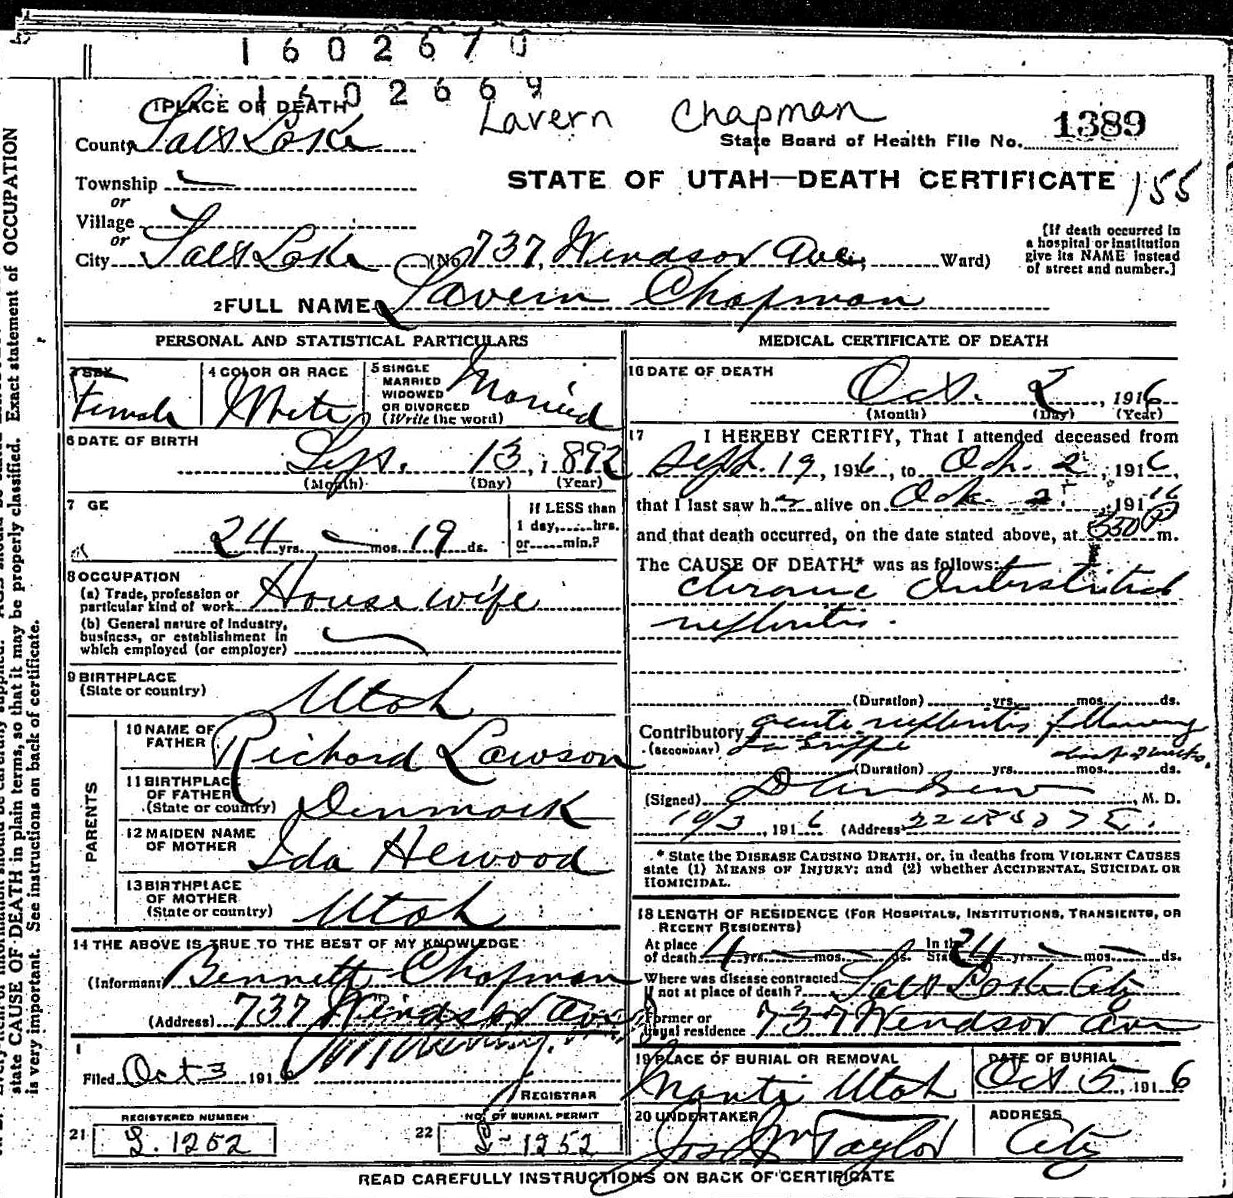 1602670
1602669
1 PLACE OF DEATH
Lavern Chapman
County Salt Lake
State Board of Health File No. 1389
Township
or
STATE OF UTAH—DEATH CERTIFICATE 155
Village
or
City Salt Lake (No. 737, Windsor Ave, Ward)
[If death occurred in
a hospital or institution
give its NAME instead
of street and number.]
2 FULL NAME Lavern Chapman
PERSONAL AND STATISTICAL PARTICULARS
3 SEX
Female
4 COLOR OR RACE
White
5 SINGLE
MARRIED
WIDOWED
OR DIVORCED
(Write the word)
Married
6 DATE OF BIRTH
Sep. 13, 1892
(Month) (Day) (Year)
7 GE
24 yrs. mos. 19 ds.
If LESS than
1 day, hrs.
or min.?
8 OCCUPATION
(a) Trade, profession or
particular kind of work House wife
(b) General nature of industry,
business, or establishment in
which employed (or employer)
9 BIRTHPLACE
(State or country)
Utah
PARENTS
10 NAME OF
FATHER
Richard Lawson
11 BIRTHPLACE
OF FATHER
(State or country)
Denmark
12 MAIDEN NAME
OF MOTHER
Ida Hewood
13 BIRTHPLACE
OF MOTHER
(State or country)
Utah
14 THE ABOVE IS TRUE TO THE BEST OF MY KNOWLEDGE
(Informant Bennett Chapman
(Address) 737 Windsor Ave
Filed Oct 3 1916
REGISTRAR
REGISTERED NUMBER
21 S. 1252
NO. OF BURIAL PERMIT
22 S-1252
MEDICAL CERTIFICATE OF DEATH
16 DATE OF DEATH
Oct. 2, 1916
(Month) (Day) (Year)
17 I HEREBY CERTIFY, That I attended deceased from
Sept. 19, 1916, to Oct. 2, 1916,
that I last saw her alive on Oct. 2, 1916
and that death occurred, on the date stated above, at 530 P m.
The CAUSE OF DEATH* was as follows:
chronic Interstitial
nefhritis.
(Duration) yrs. mos. ds.
Contributory acute nefhritis following
(SECONDARY) La Grippe last 2 weeks.
(Duration) yrs. mos. ds.
(Signed) M. D.
10/3, 1916 (Address)
* State the DISEASE CAUSING DEATH, or, in deaths from VIOLENT CAUSES
state (1) MEANS OF INJURY; and (2) whether ACCIDENTAL, SUICIDAL OR
HOMICIDAL.
18 LENGTH OF RESIDENCE (FOR HOSPITALS, INSTITUTIONS, TRANSIENTS, OR
RECENT RESIDENTS)
At place
of death 4 yrs. mos. ds.
In the
State 24 yrs. mos. ds.
Where was disease contracted
if not at place of death? Salt Lake City
Former or
usual residence 737 Windsor Ave
19 PLACE OF BURIAL OR REMOVAL
Manti Utah
DATE OF BURIAL
Oct 5, 1916
20 UNDERTAKER
Jos Wm Taylor
ADDRESS
City
READ CAREFULLY INSTRUCTIONS ON BACK OF CERTIFICATE
state CAUSE OF DEATH in plain terms, so that it may be properly classified. Exact statement of OCCUPATION
is very important. See instructions on back of certificate.